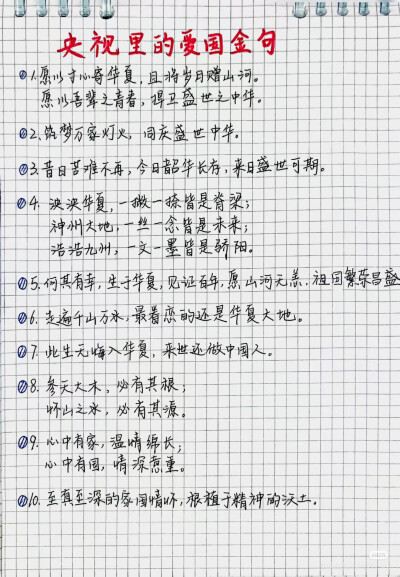 央视里的爱国金句
1.愿以寸心寄华夏，且将岁月赠山河。
愿以吾辈之青春，捍卫盛世之中华。
2.筑梦万家灯火，同庆盛世中华。
3.昔日苦难不再，今日韶华长存，来日盛世可期。
4.泱泱华夏，一撇一捺皆是脊梁；
神州大地，一丝一念皆是未来；
浩浩九州，一文一墨皆是骄阳。
5.何其有幸，生于华夏，见证百年，愿山河无恙，祖国繁荣昌盛
6.走遍千山万水，最眷恋的还是华夏大地。
7.此生无悔入华夏，来世还做中国人。
8.参天大木，必有其根；
怀山之水，必有其源。
9.心中有家，温情绵长；
心中有国，情深意重。
10.至真至深的家国情怀，根植于精神的沃土。